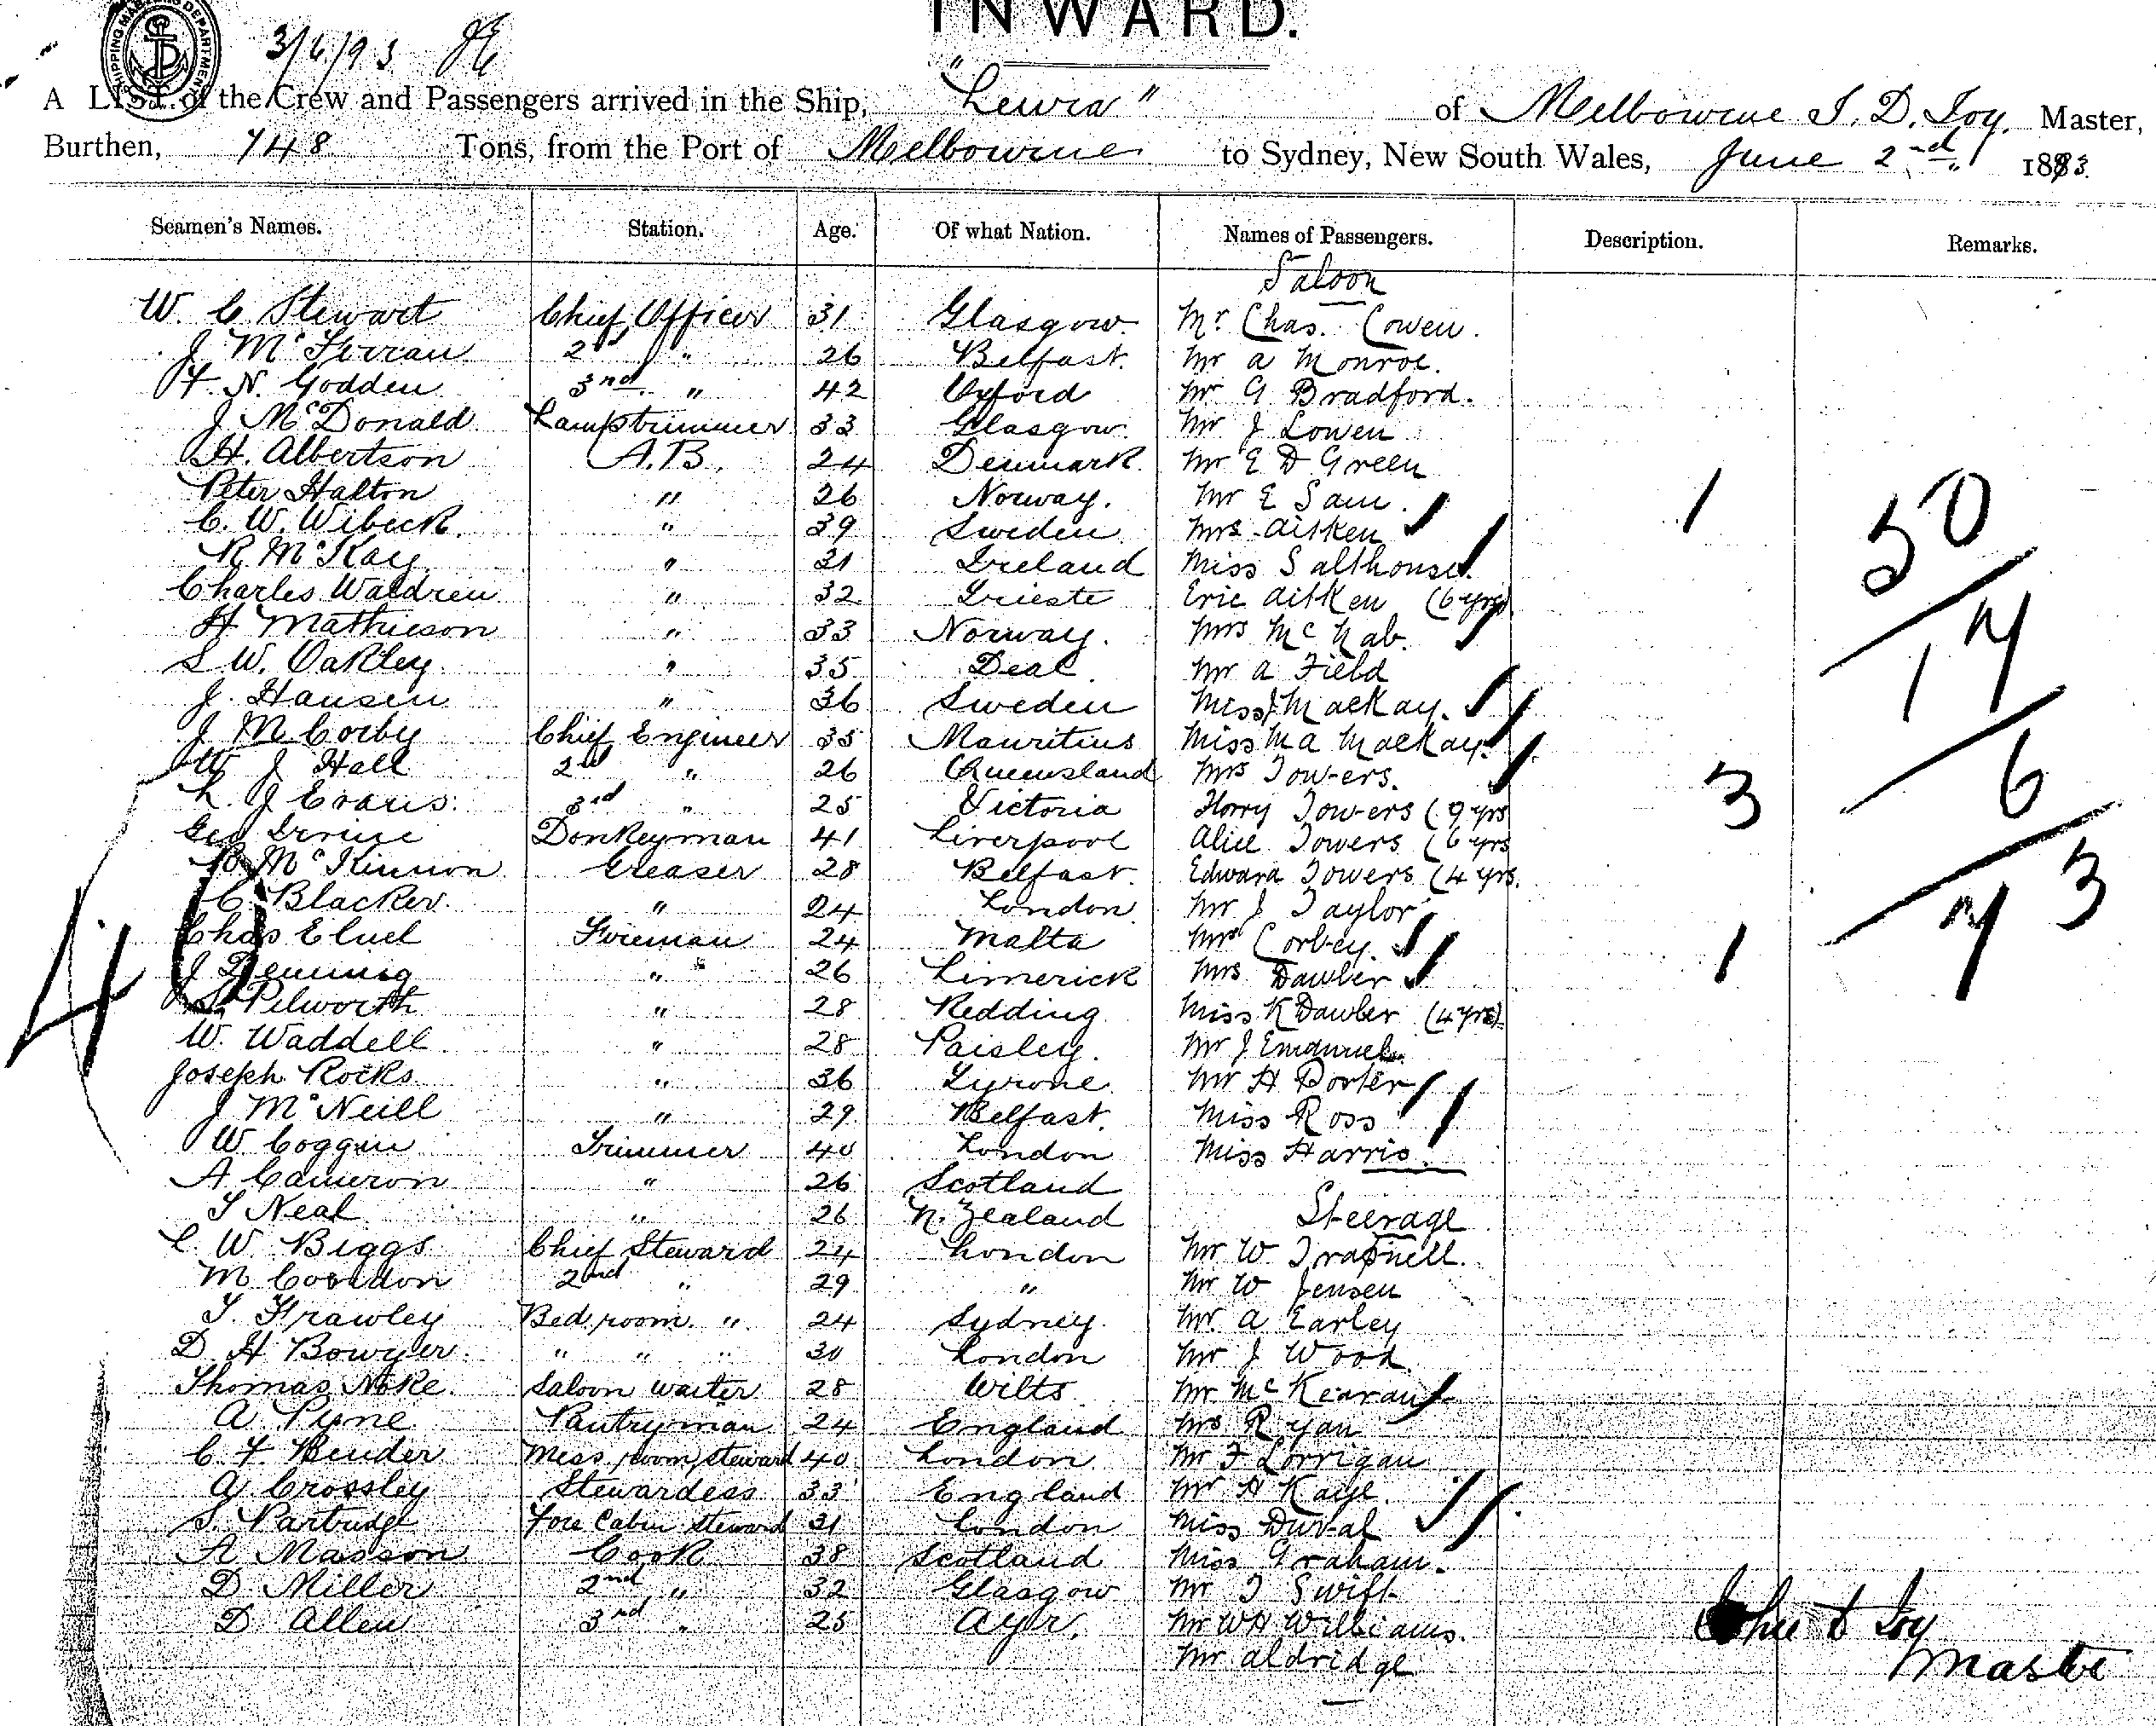 INWARD.
SHIPPING MASTERS DEPARTMENT
3/6/93
A LIST of the Crew and Passengers arrived in the Ship, of Melbourne J. D. Joy. Master,
Burthen, 748 Tons, from the Port of Melbourne to Sydney, New South Wales, June 2nd 1893.
Seamen's Names. Station. Age. Of what Nation. Names of Passengers. Description. Remarks.
Saloon
W. C Stewart Chief Officer 31 Glasgow. Mr Chas. Cowen.
J McFerran 2nd " 26 Belfast. Mr A Monroe.
F. N. Godden 3rd " 42 Oxford Mr G Bradford.
J McDonald Lamptrimmer 33 Glasgow. Mr J Lowen
H. Albertson A.B. 24 Denmark. Mr E D Green
Peter Halton " 26 Norway. Mr E Sam. 1 50
C. W. Wibeck. " 39 Sweden. Mrs Aitken
R McKay. " 31 Ireland Miss Salthouse.
Charles Waldren " 32 Trieste Eric Aitken (6 yrs)
H Mathieson " 33 Norway. Mrs McNab. 17
S W. Oakley. " 35 Deal. Mr A Field
J. Hansen " 36 Sweden Miss J Mackay.
J M Corby Chief Engineer 35 Mauritius Miss M A Mackay.
W J Hall 2nd " 26 Queensland Mrs Towers. 3 6
L. J Evans. 3rd " 25 Victoria Harry Towers (9 yrs
Geo Irvine Donkeyman 41 Liverpool Alice Towers (6 yrs
McKinnon Greaser 28 Belfast. Edward Towers (4 yrs.
C. Blacker. " 24 London. Mr J Taylor 73
Chas Eluel Fireman 24 Malta Mrs Corbey. 1
J Denning " 26 Limerick Mrs Dawber
40 S. Pilworth " 28 Redding Miss K Dawber (4 yrs)
W. Waddell " 28 Paisley. Mr J Emanuel.
Joseph Rocks " 36 Tyrone Mr H Porter
J McNeill " 29 Belfast. Miss Ross
W Coggin Trimmer 40 London Miss Harris.
A Cameron " 26 Scotland
T Neal " 26 N. Zealand Steerage
C. W. Biggs Chief Steward 24 London Mr W Trapnell.
M Corndon 2nd " 29 " Mr W Jensen
T. Frawley Bedroom " 24 Sydney. Mr. A Earley
D. H Bowyer. " " " 30 London Mr J Wood.
Thomas Noke. Saloon Waiter 28 Wilts Mr McKearan
A Pyne Pantryman 24 England Mrs Ryan
C. F. Bender Mess room steward 40 London Mr F Lorrigan
A Crossley Stewardess 33 England Mr H Kaye.
S. Partridge Fore Cabin steward 31 London Miss Duval
A Masson Cook 38 Scotland Miss Graham.
D. Miller 2nd " 32 Glasgow Mr T Swift
D. Allen 3rd " 25 Ayr. Mr W H Williams.
Mr Aldridge
John D Joy
Master